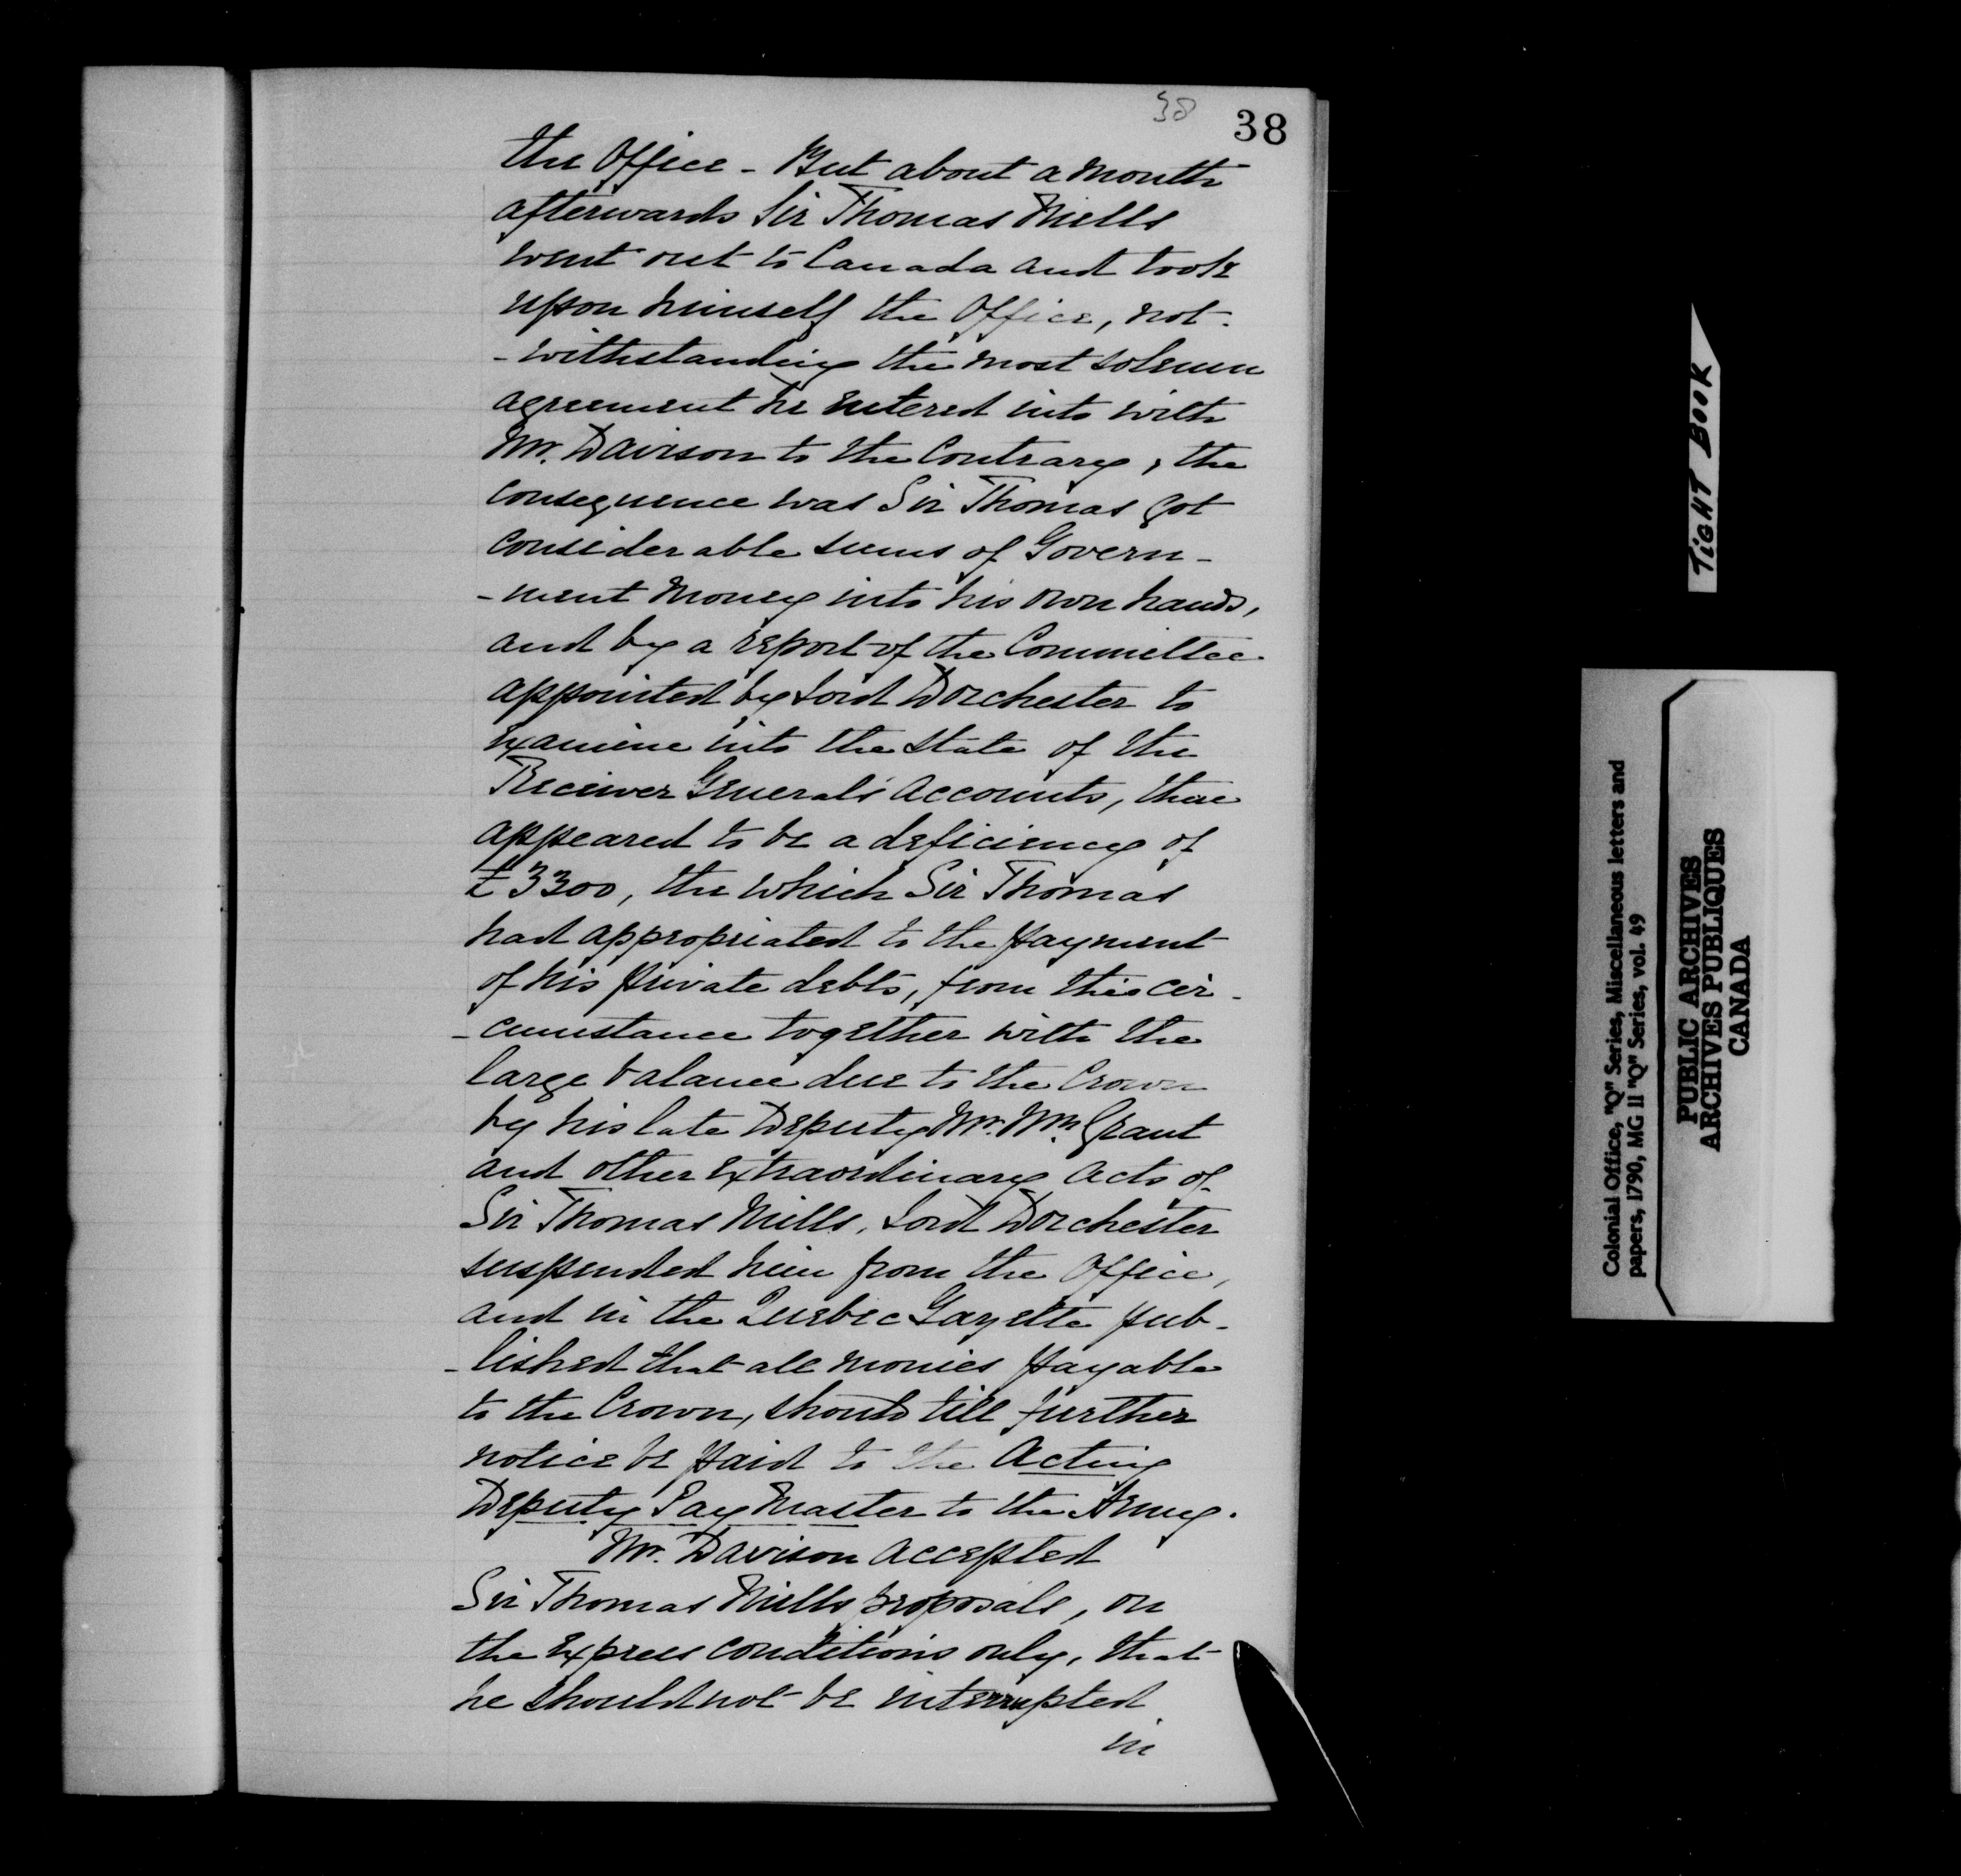 38
38
the Office - But about a month
afterwards Sir Thomas Mills
went out to Canada and took
upon himself the Office, not-
-withstanding the most solemn
agreement he entered into with
Mr. Davison to the Contrary, the
consequence was Sir Thomas got
considerable sums of Govern-
-ment Money into his own hands,
and by a report of the Committee
appointed by Lord Dorchester to
examine into the state of the
Receiver General's Accounts, there
appeared to be a deficiency of
£3300, the which Sir Thomas
had appropriated to the payment
of his private debts, from this cir-
-cumstance together with the
large balance due to the Crown
by his late Deputy Mr. Wm Grant
and other extraordinary acts of
Sir Thomas Mills, Lord Dorchester
suspended him from the Office,
and in the Quebec Gazette pub-
-lished that all monies payable
to the Crown, should till further
notice be paid to the Acting
Deputy Pay Master to the Army.
Mr. Davison accepted
Sir Thomas Mills proposals, on
the express conditions only, that
he should not be interrupted
in
TIGHT BOOK
Colonial Office, "Q" Series, Miscellaneous letters and
papers, 1790, MG 11 "Q" Series, vol. 49
PUBLIC ARCHIVES
ARCHIVES PUBLIQUES
CANADA